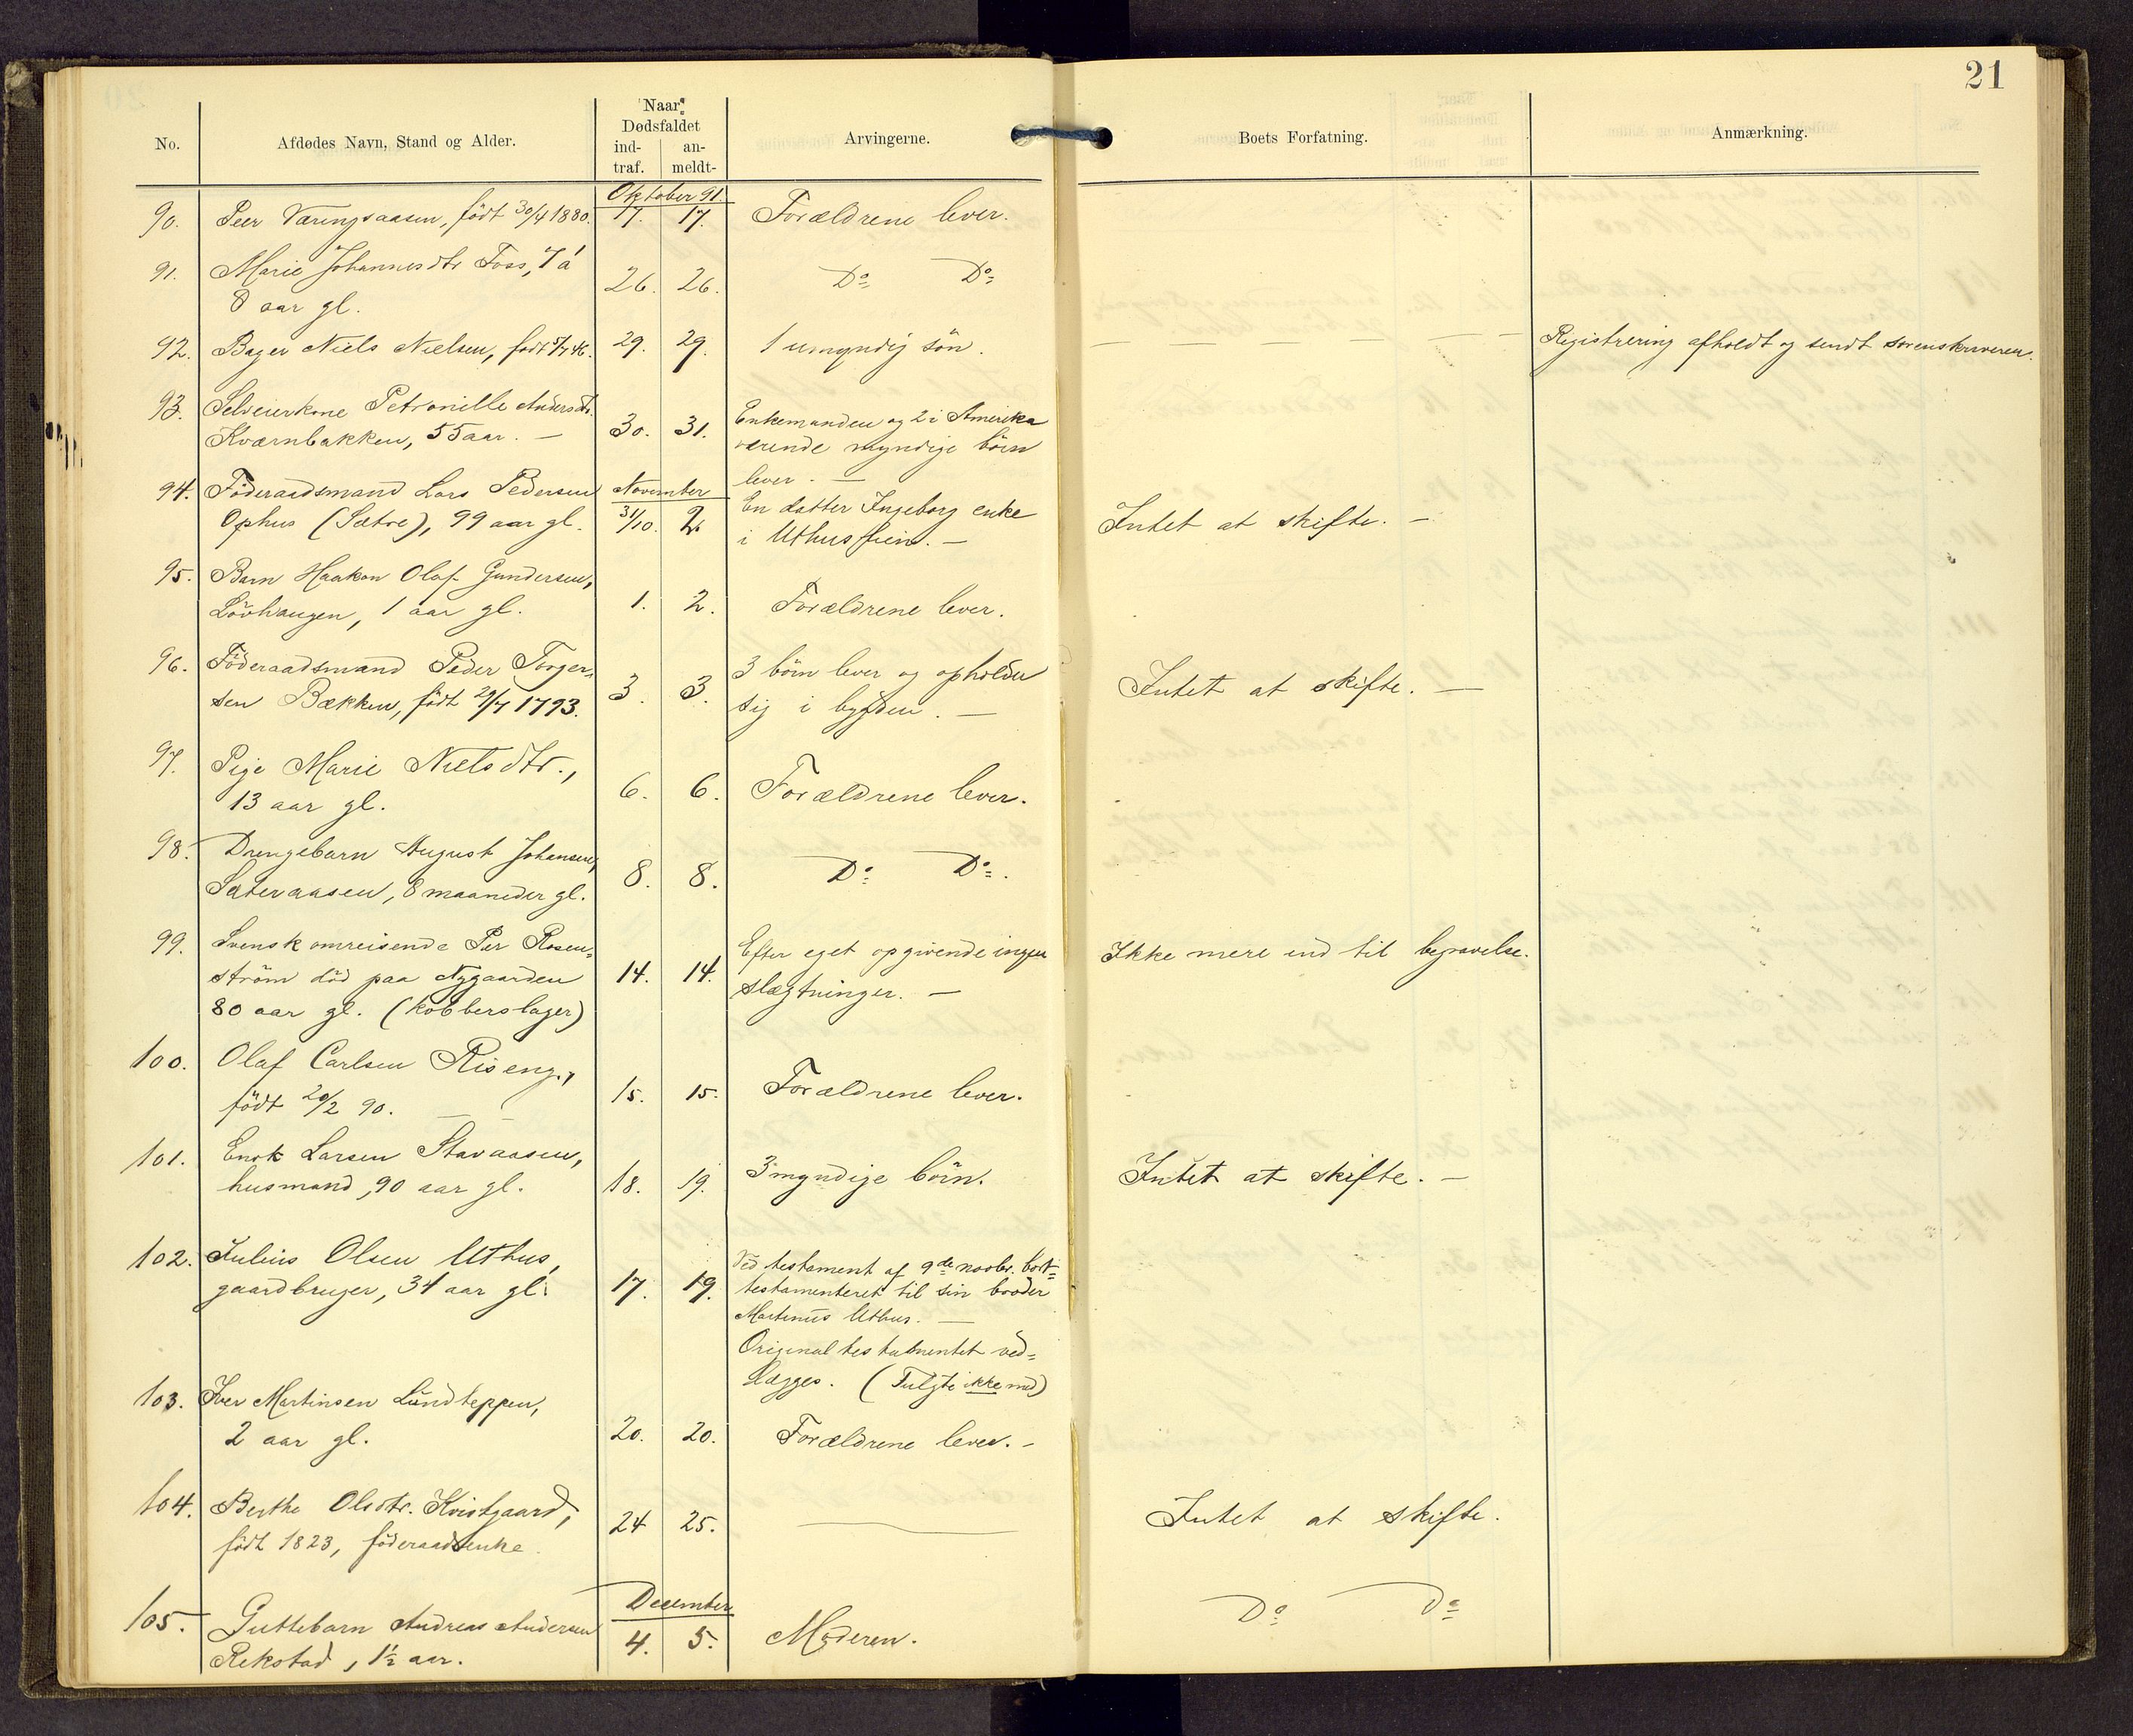 21
No.
Afdødes Navn, Stand og Alder.
Naar
Dødsfaldet
ind-
traf.
an-
meldt-
Arvingerne.
Boets Forfatning.
Anmærkning.
Oktober 91.
90. Peer Væringsaasen, födt 30/4 1880. 17. 17. Forældrene lever.
91. Marie Johannesdtr Foss, 7 á
8 aar gl. 26. 26. Do Do
92. Bager Niels Nielsen, födt 5/7 46. 29. 29. 1 umyndig sön. Registrering afholdt og sendt sorenskriveren.
93. Selveierkone Petronille Andersdtr.
Kværnbakken, 55 aar. — 30. 31. Enkemanden og 2 i Amerika
værende myndige börn
lever. —
November
94. Föderaadsmand Lars Pedersen
Ophus (Sætre), 99 aar gl. 31/10. 2. En datter Ingeborg enke
i Uthusfien. — Intet at skifte. —
95. Barn Haakon Olaf Gundersen,
Lövhaugen, 1 aar gl. 1. 2. Forældrene lever.
96. Föderaadsmand Peder Torger-
sen Bækken, födt 29/7 1793. 3. 3. 3 börn lever og opholder
sig i bygden. — Intet at skifte. —
97. Pige Marie Nielsdtr.,
13 aar gl. 6. 6. Forældrene lever.
98. Drengebarn August Johansen,
Sæteraasen, 8 maaneder gl. 8. 8. Do Do.
99. Svensk omreisende Per Rosen-
ström död paa Nygaarden
80 aar gl. (kobberslager) 14. 14. Efter eget opgivende ingen
slægtninger. — Ikke mere end til begravelse.
100. Olaf Carlsen Riseng.,
födt 20/2 90. 15. 15. Forældrene lever.
101. Enok Larsen Stavaasen,
husmand, 90 aar gl. 18. 19. 3 myndige börn. Intet at skifte. —
102. Julius Olsen Uthus,
gaardbruger, 34 aar gl. 17. 19. Ved testament af 9de novbr. bort-
testamenteret til sin broder
Martinius Uthus. —
Original testamentet ved-
lægges. (Fulgte ikke med)
103. Iver Martinsen Lundteppen,
2 aar gl. 20. 20. Forældrene lever. -
104. Berthe Olsdtr. Kvistgaard,
födt 1823, föderaadsenke. 24 25. Intet at skifte.
December
105. Guttebarn Andreas Andersen
Rekstad, 1½ aar. 4. 5. Moderen. Do Do